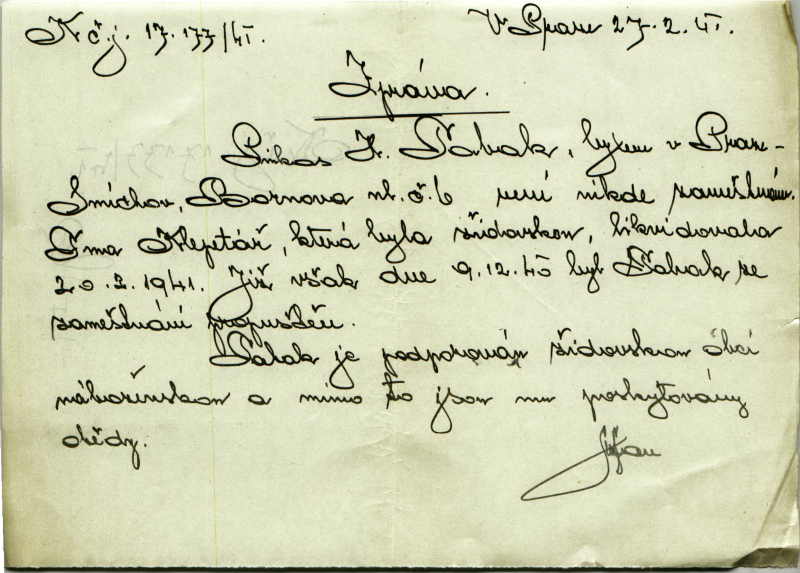 K č.j. 17.177/41. V Praze 27.2.41.
Zpráva.
Pinkas F. Sabak, bytem v Praze-
Smíchov, Bornova ul. č. 6 není nikde zaměstnán.
Firma Klepetář, která byla židovskou, likvidovala
20.2.1941. Již však dne 9.12.40 byl Sabak ze
zaměstnání propuštěn.
Sabak je podporován židovskou obcí
náboženskou a mimo to jsou mu poskytovány
obědy.